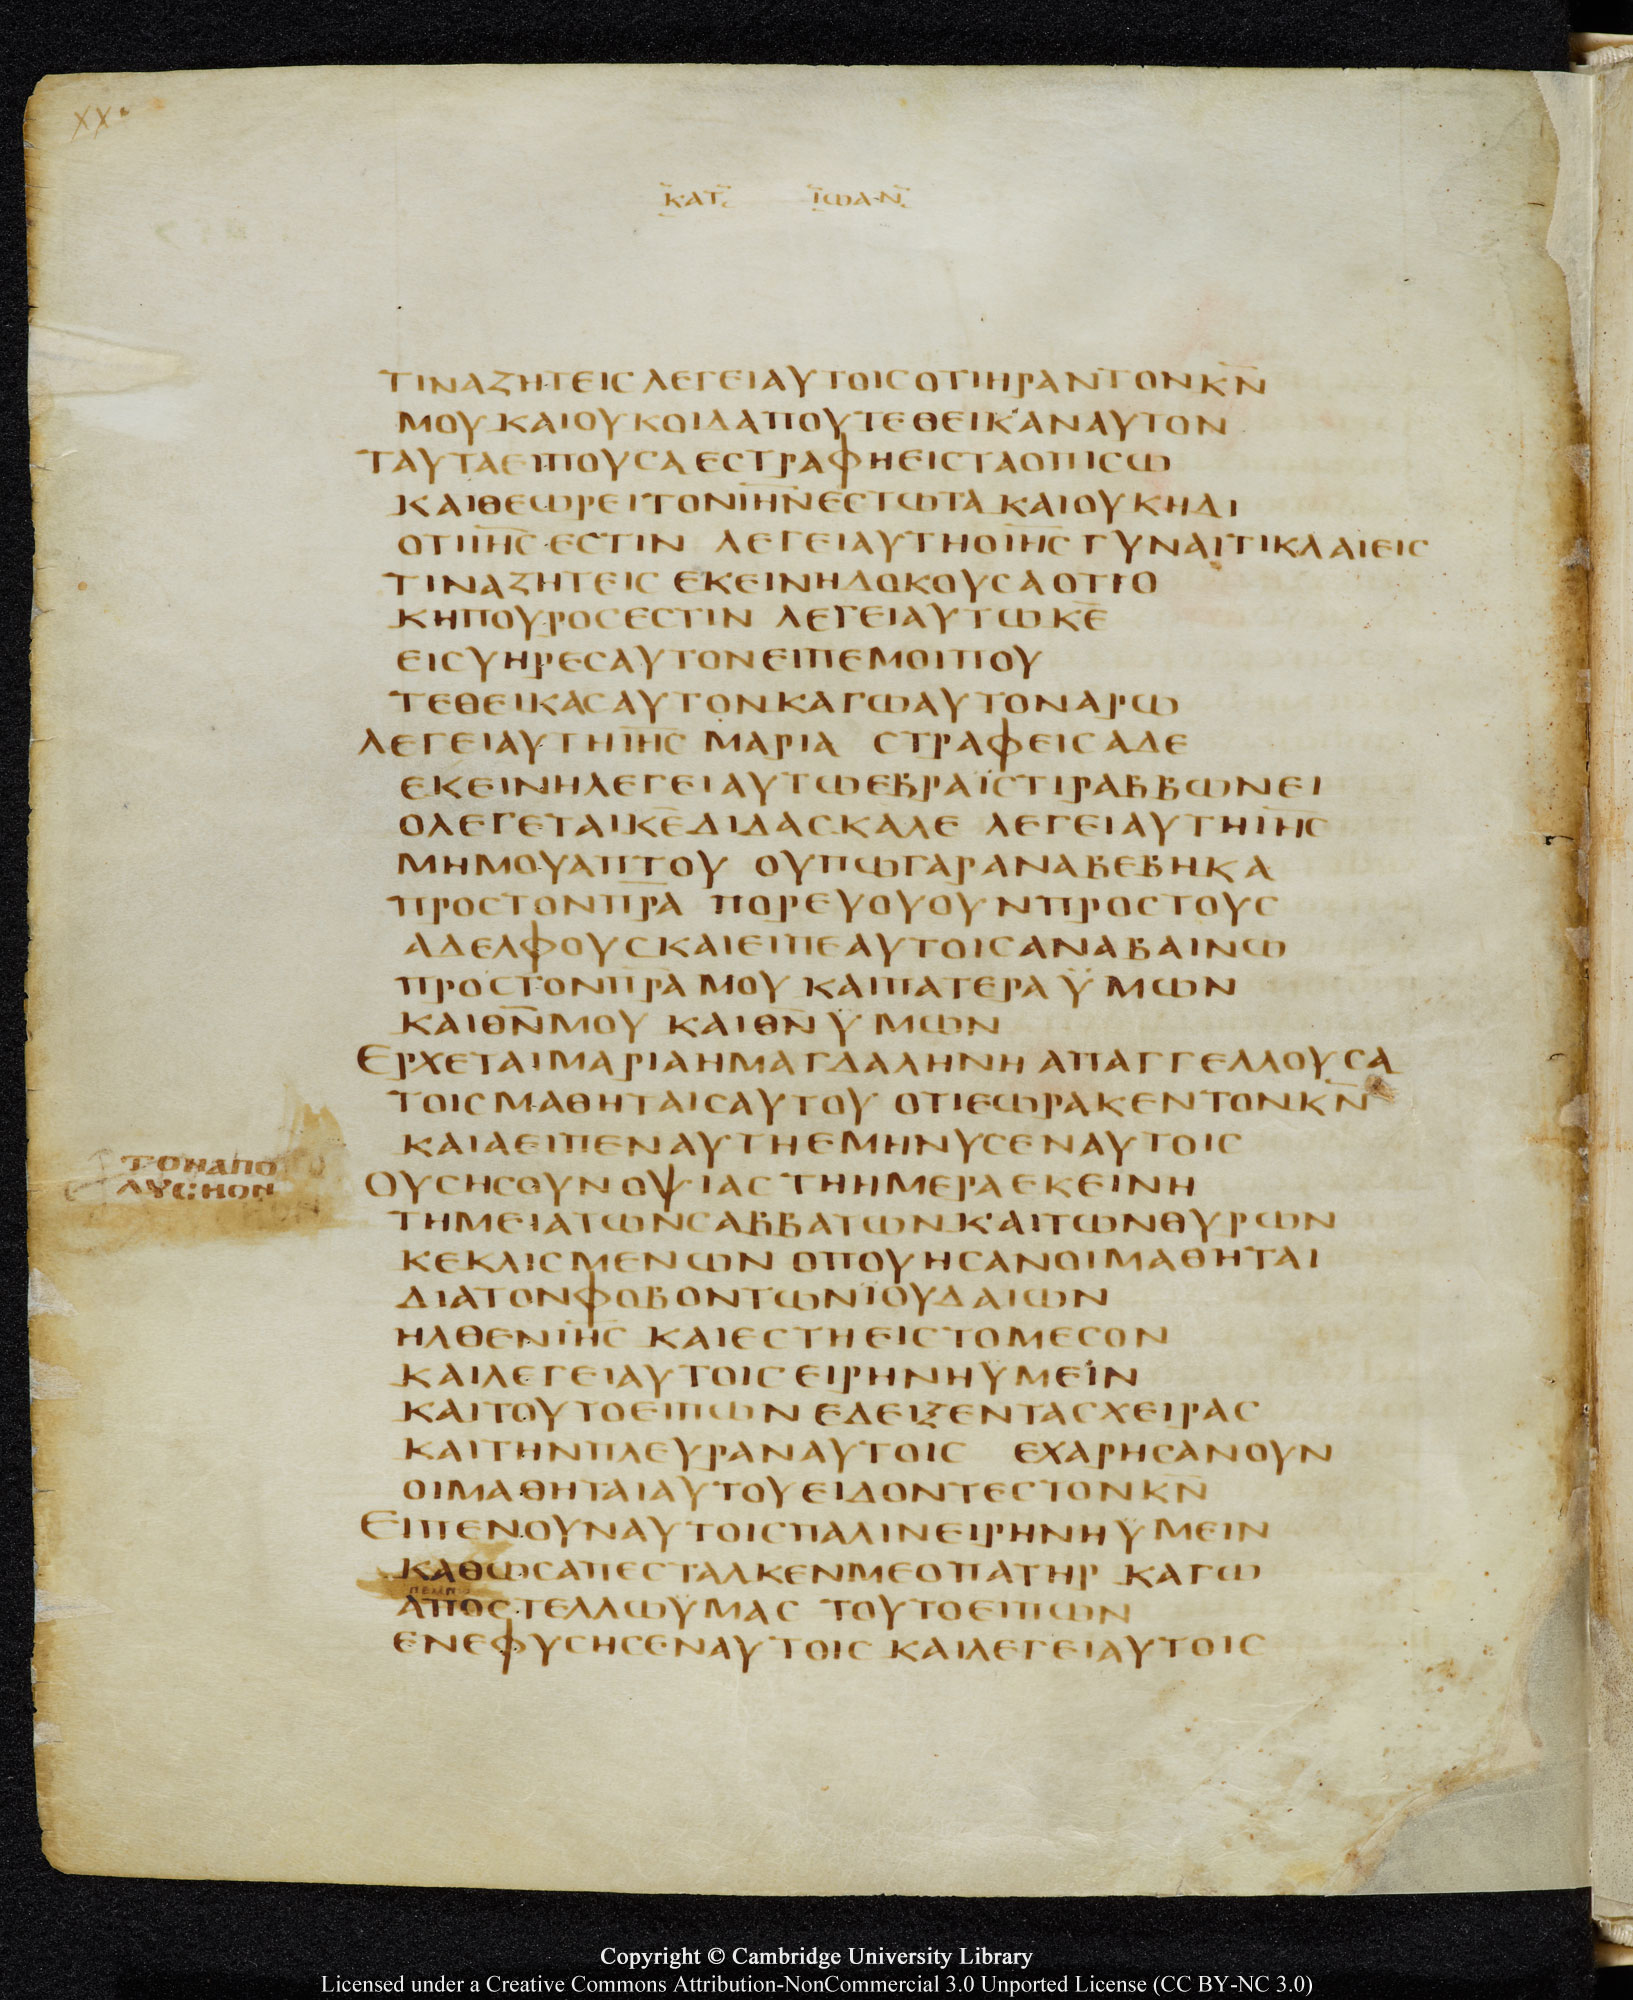 XX.
ΚΑΤ ΙΩΑΝ
ΤΙΝΑΖΗΤΕΙϹ ΛΕΓΕΙΑΥΤΟΙϹΟΤΙΗΡΑΝΤΟΝΚ̅Ν̅
ΜΟΥΚΑΙΟΥΚΟΙΔΑΠΟΥΤΕΘΕΙΚΑΝΑΥΤΟΝ
ΤΑΥΤΑΕΙΠΟΥϹΑ ΕϹΤΡΑΦΗΕΙϹΤΑΟΠΙϹΩ
ΚΑΙΘΕΩΡΕΙΤΟΝΙ̅Η̅Ν̅ΕϹΤΩΤΑ ΚΑΙΟΥΚΗΔΙ
ΟΤΙΙ̅Η̅Ϲ̅ ΕϹΤΙΝ ΛΕΓΕΙΑΥΤΗΟΙ̅Η̅Ϲ̅ ΓΥΝΑΙΤΙΚΛΑΙΕΙϹ
ΤΙΝΑΖΗΤΕΙϹ ΕΚΕΙΝΗΔΟΚΟΥϹΑ ΟΤΙΟ
ΚΗΠΟΥΡΟϹΕϹΤΙΝ ΛΕΓΕΙΑΥΤΩΚ̅Ε̅
ΕΙϹΥΗΡΕϹΑΥΤΟΝΕΙΠΕΜΟΙΠΟΥ
ΤΕΘΕΙΚΑϹΑΥΤΟΝΚΑΓΩΑΥΤΟΝΑΡΩ
ΛΕΓΕΙΑΥΤΗΙ̅Η̅Ϲ̅ ΜΑΡΙΑ ϹΤΡΑΦΕΙϹΑΔΕ
ΕΚΕΙΝΗΛΕΓΕΙΑΥΤΩΕΒΡΑΪϹΤΙΡΑΒΒΩΝΕΙ
ΟΛΕΓΕΤΑΙΚ̅Ε̅ΔΙΔΑϹΚΑΛΕ ΛΕΓΕΙΑΥΤΗΙ̅Η̅Ϲ̅
ΜΗΜΟΥΑΠΤΟΥ ΟΥΠΩΓΑΡΑΝΑΒΕΒΗΚΑ
ΠΡΟϹΤΟΝΠ̅Ρ̅Α̅ ΠΟΡΕΥΟΥΟΥΝΠΡΟϹΤΟΥϹ
ΑΔΕΛΦΟΥϹΚΑΙΕΙΠΕΑΥΤΟΙϹΑΝΑΒΑΙΝΩ
ΠΡΟϹΤΟΝΠ̅Ρ̅Α̅ ΜΟΥ ΚΑΙΠΑΤΕΡΑ ΫΜΩΝ
ΚΑΙΘ̅Ν̅ΜΟΥ ΚΑΙΘ̅Ν̅ΥΜΩΝ
ΕΡΧΕΤΑΙΜΑΡΙΑΗΜΑΓΔΑΛΗΝΗ ΑΠΑΓΓΕΛΛΟΥϹΑ
ΤΟΙϹΜΑΘΗΤΑΙϹΑΥΤΟΥ ΟΤΙΕΩΡΑΚΕΝΤΟΝΚ̅Ν̅
ΚΑΙΑΕΙΠΕΝΑΥΤΗΕΜΗΝΥϹΕΝΑΥΤΟΙϹ
ΤΟΗΑΠΟ
ΛΥϹΗΟΝ
ΟΥϹΗϹΟΥΝ ΟΨΙΑϹ ΤΗΗΜΕΡΑΕΚΕΙΝΗ
ΤΗΜΕΙΑΤΩΝϹΑΒΒΑΤΩΝΚΑΙΤΩΝΘΥΡΩΝ
ΚΕΚΛΙϹΜΕΝΩΝ ΟΠΟΥΗϹΑΝΟΙΜΑΘΗΤΑΙ
ΔΙΑΤΟΝΦΟΒΟΝΤΩΝΪΟΥΔΑΙΩΝ
ΗΛΘΕΝΙ̅Η̅Ϲ̅ ΚΑΙΕϹΤΗΕΙϹΤΟΜΕϹΟΝ
ΚΑΙΛΕΓΕΙΑΥΤΟΙϹΕΙΡΗΝΗΥΜΕΙΝ
ΚΑΙΤΟΥΤΟΕΙΠΩΝ ΕΔΕΙΞΕΝΤΑϹΧΕΙΡΑϹ
ΚΑΙΤΗΝΠΛΕΥΡΑΝΑΥΤΟΙϹ ΕΧΑΡΗϹΑΝΟΥΝ
ΟΙΜΑΘΗΤΑΙΑΥΤΟΥΕΙΔΟΝΤΕϹΤΟΝΚ̅Ν̅
ΕΙΠΕΝΟΥΝΑΥΤΟΙϹΠΑΛΙΝΕΙΡΗΝΗΫΜΕΙΝ
ΚΑΘΩϹΑΠΕϹΤΑΛΚΕΝΜΕΟΠΑΤΗΡ ΚΑΓΩ
ΠΕΜΠ
ΑΠΟϹΤΕΛΛΩΫΜΑϹ ΤΟΥΤΟΕΙΠΩΝ
ΕΝΕΦΥϹΗϹΕΝΑΥΤΟΙϹ ΚΑΙΛΕΓΕΙΑΥΤΟΙϹ
Copyright © Cambridge University Library
Licensed under a Creative Commons Attribution-NonCommercial 3.0 Unported License (CC BY-NC 3.0)